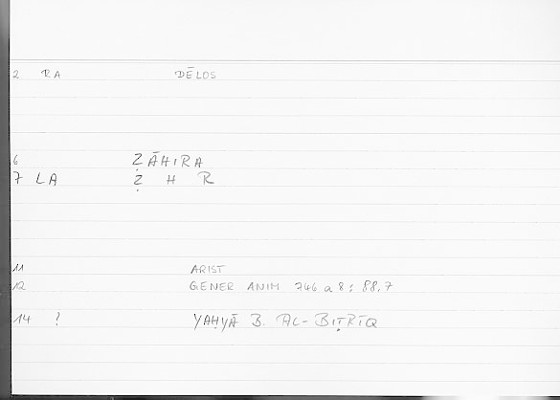 2 RA DĒLOS
6 ẒĀHIRA
7 LA Ẓ H R
11 ARIST
12 GENER ANIM 746 a 8 ; 88,7
14 ? YAḤYĀ B. AL-BIṬRĪQ